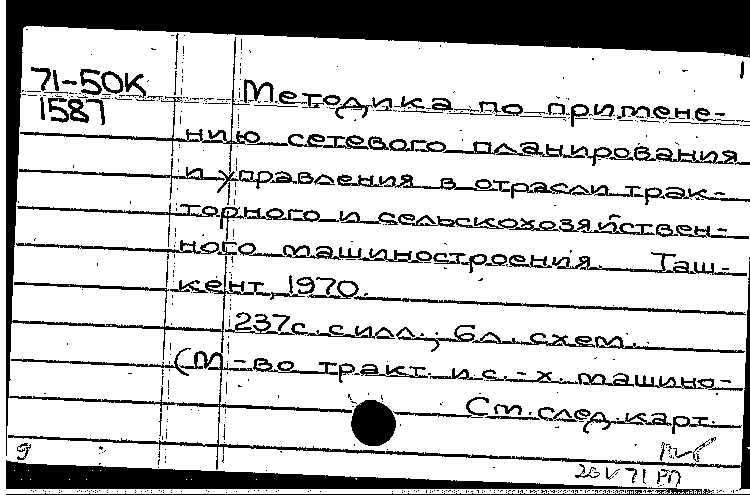 1
71-50К
1587
Методика по примене-
нию сетевого планирования
и управления в отрасли трак-
торного и сельскохозяйствен-
ного машиностроения. Таш-
кент, 1970.
237с. с илл.; 6л. схем.
(М-во тракт. и с.-х. машино-
См. след. карт.
g
26 V 71 РП